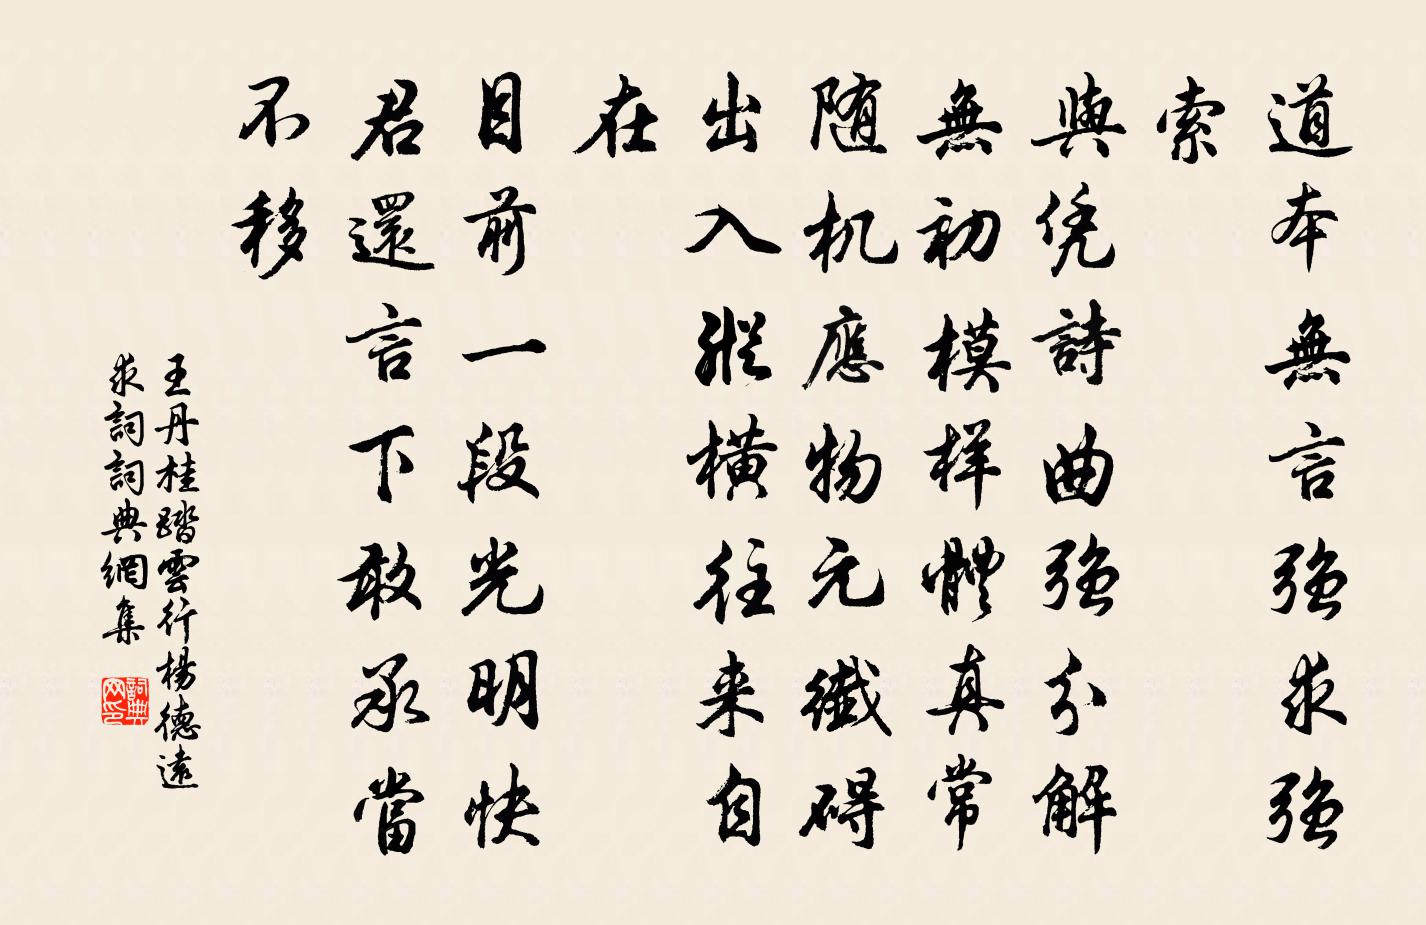 道本無言強求強
索
與凭詩曲強分解
無初模样體真常
随机應物元纖碍
出入縱橫往来自
在
目前一段光明快
君還言下敢承當
不移
王丹桂踏雲行楊德遠
求詞詞典網集
詞典网印